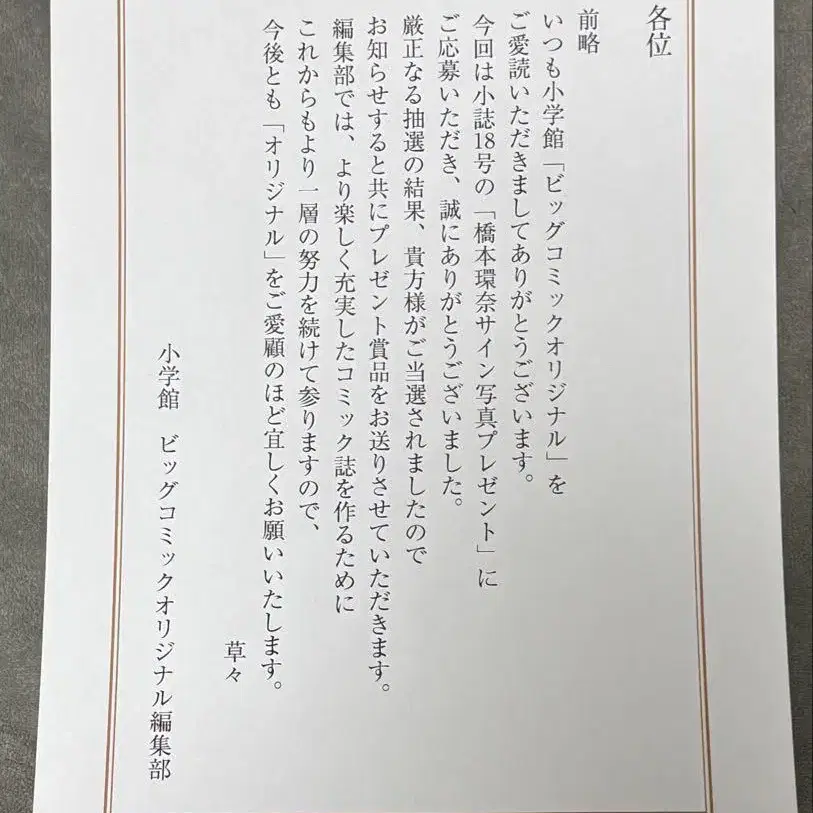 各位
前略
いつも小学館「ビッグコミックオリジナル」を
ご愛読いただきましてありがとうございます。
今回は小誌18号の「橋本環奈サイン写真プレゼント」に
ご応募いただき、誠にありがとうございました。
厳正なる抽選の結果、貴方様がご当選されましたので
お知らせすると共にプレゼント賞品をお送りさせていただきます。
編集部では、より楽しく充実したコミック誌を作るために
これからもより一層の努力を続けて参りますので、
今後とも「オリジナル」をご愛顧のほど宜しくお願いいたします。
草々
小学館 ビッグコミックオリジナル編集部